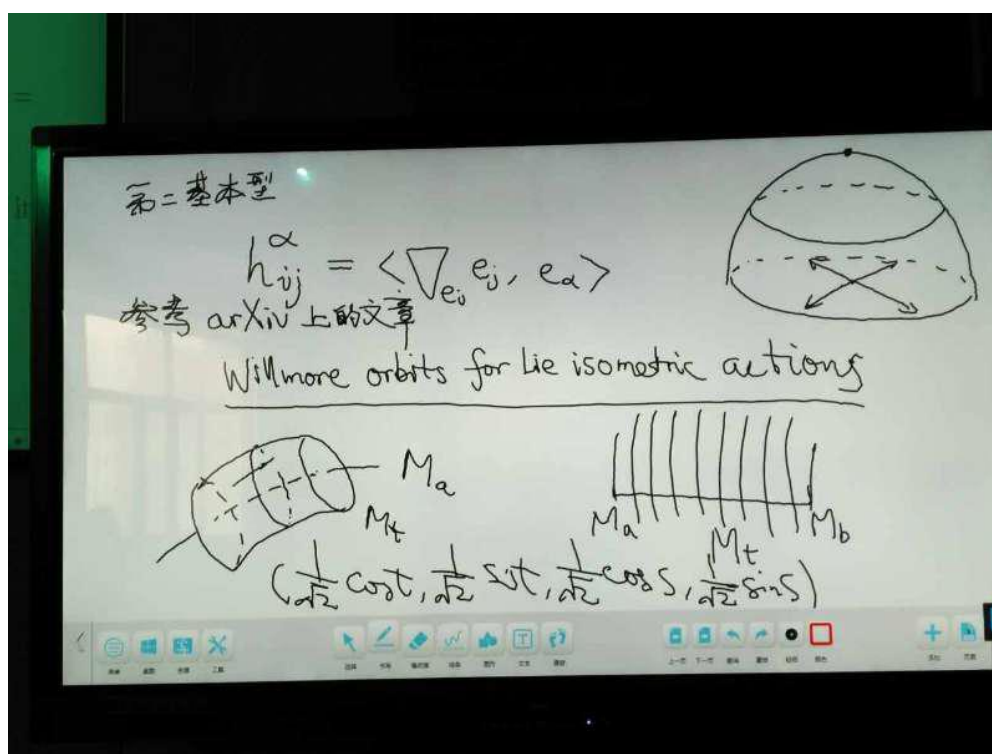 第二基本型
h_{ij}^α = <∇_{e_i} e_j, e_α>
参考 arXiv 上的文章
Willmore orbits for Lie isometric actions
M_a
M_t
M_a M_t M_b
(1/√2 cost, 1/√2 sint, 1/√2 cos s, 1/√2 sin s)
工具
上一页 下一页